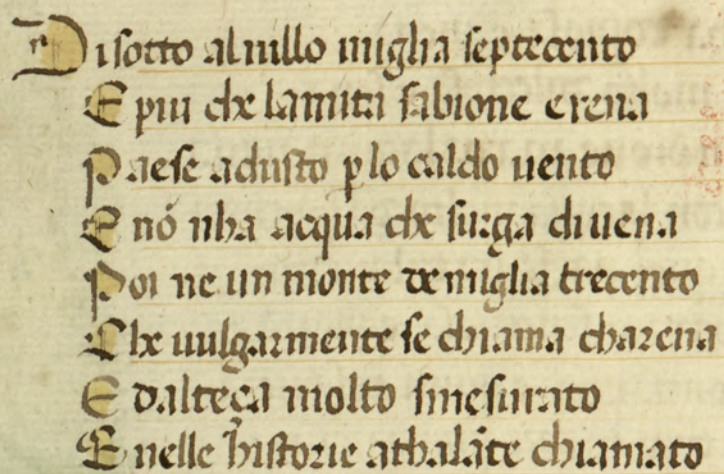 Disotto alnillo miglia septecento
E piu che lamita sabione e rena
Paese adusto p lo caldo uento
E nõ nha acqua che surga di uena
Poi ne un monte de miglia trecento
Che uulgarmente se chiama charena
E dalteça molto smesurato
E nelle historie athalãte chiamato